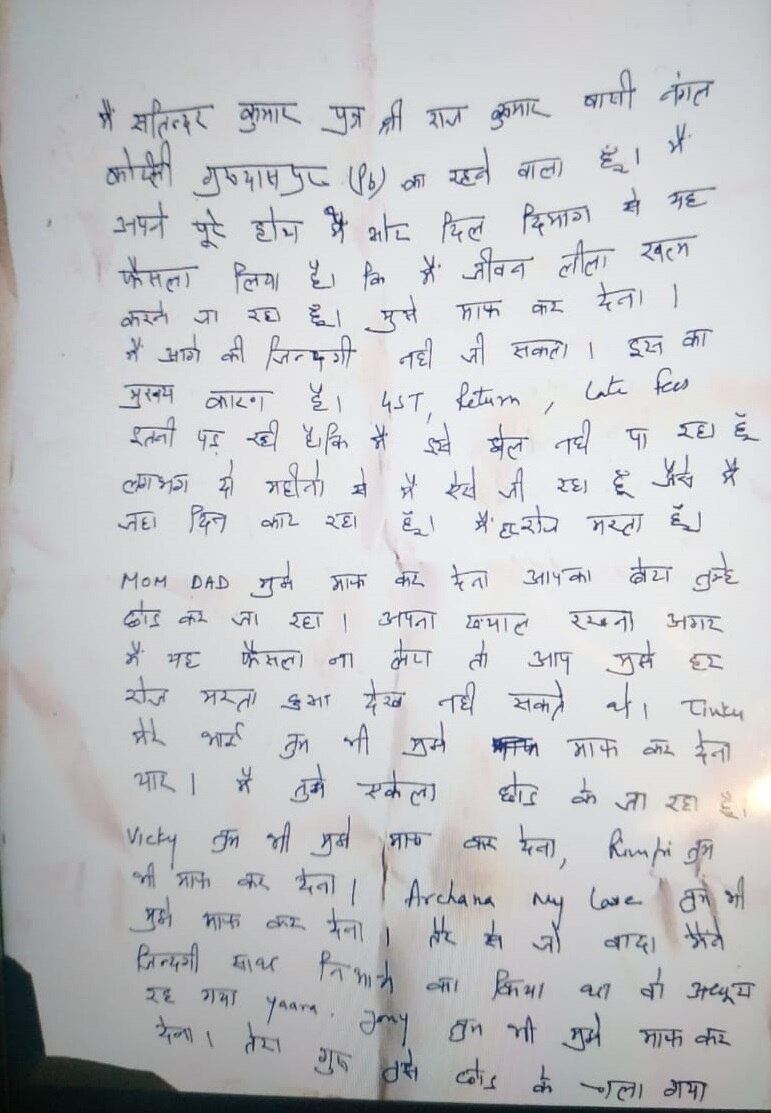 मैं सतिन्दर कुमार पुत्र श्री राज कुमार वासी नंगल
कोटली गुरदासपुर (Pb) का रहने वाला हूँ। मैं
अपने पूरे होश में और दिल दिमाग से यह
फैसला लिया है। कि मैं जीवन लीला खत्म
करने जा रहा हूँ। मुझे माफ कर देना ।
मैं आगे की जिन्दगी नही जी सकता । इस का
मुख्य कारण है। GST, Return , Late fees
इतनी पड़ रही है। कि मैं इसे झेल नही पा रहा हूँ
लगभग दो महीनो से मैं ऐसे जी रहा हूँ जैसे मैं
दिन काट रहा हूँ। मैं हर रोज मरता हूँ।
MOM DAD मुझे माफ कर देना आपका बेटा तुम्हे
छोड कर जा रहा । अपना ख्याल रखना अगर
मैं यह फैसला ना लेता तो आप मुझे हर
रोज मरता हुआ देख नही सकते थे। Tinku
मेरे भाई तुम भी मुझे माफ कर देना
यार । मैं तुझे एकेला छोड के जा रहा हूँ।
Vicky तुम भी मुझे माफ कर देना, Rimpi तुम
भी माफ कर देना । Archana My Love तुम भी
मुझे माफ कर देना । तेरे से जो वादा मैंने
जिन्दगी साथ निभाने का किया था वो अधूरा
रह गया yaara. Jony तुम भी मुझे माफ कर
देना । तेरा गुरु तुझे छोड के चला गया